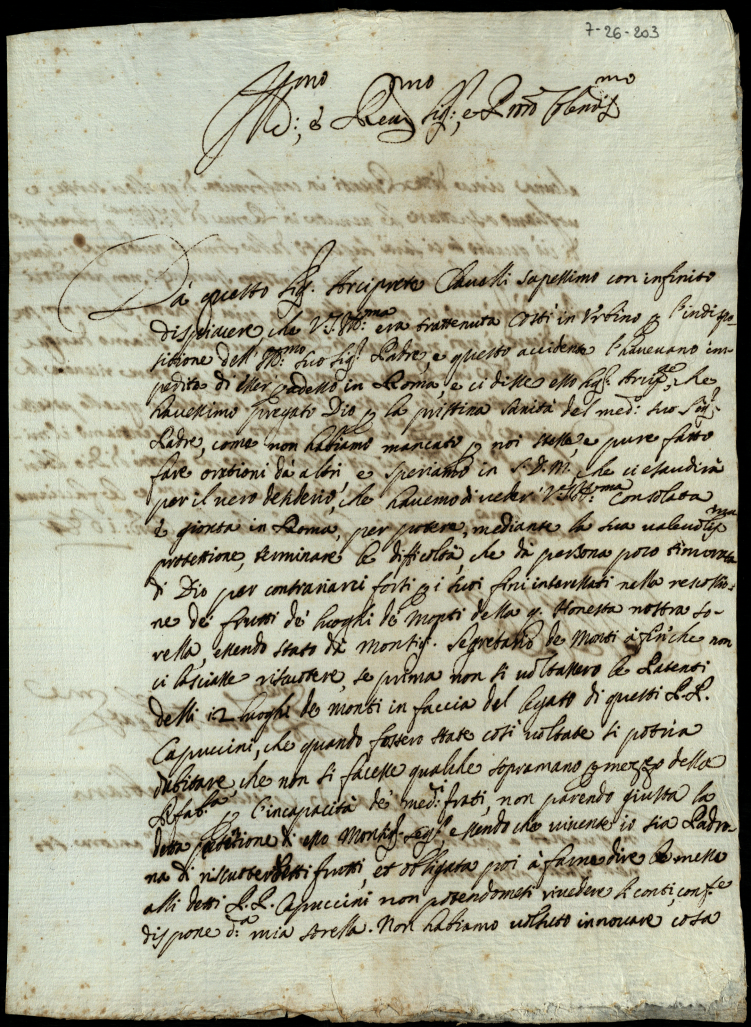 7-26-203
Ill:mo, e Rev:mo Sig:r, e P.rone Colend:mo
Da questo Sig:r Arciprete Clavelli sapessimo con infinito
dispiacere che V.S. Ill:ma era trattenuta costì in Urbino p l'indispo-
sitione dell'Ill:mo suo Sig:r Padre, e questo accidente l'havevano im-
pedita di esser adesso in Roma, e ci disse esso Sig:r Arcip:te, che
havessimo pregato Dio p la pristina sanità del med:o suo Sig:r
Padre, come non habiamo mancato p noi stesse, e pure fatto
fare orationi dà altri, e speriamo in S.D.M. che ci esaudirà
per il vero desiderio, che havemo di veder V.S. Ill:ma consolata
e gionta in Roma, per potere, mediante la sua valevoliss:ma
protettione, terminare le difficoltà, che dà persona poco timorata
di Dio per contrariarci forsi p i suoi fini interessati nella rescossio-
ne dei frutti de luoghi de Monti della q. Honesta nostra so-
rella, essendo stato dà Monsig:r Segretario de Monti à fin che non
ci lasciasse riscotere, se prima non si voltassero le Patenti
delli 12 luoghi de monti in faccia del legato di questi P.P.
Capuccini, che quando fossero state così voltate si potria
dubitare, che non si facesse qualche sopramano p mezzo della
R. fab:ca p l'incapacità de med:i frati, non parendo giusta la
detta petitione di esso Monsig:r Seg:rio essendo che vivente io sia Padro-
na di riscuoter detti frutti, et obligata poi à farne dire le messe
alli detti P.P. Capuccini non potendomeli rivedere li conti, conf:e
dispone d:a mia sorella. Non habiamo voluto innovare cosa